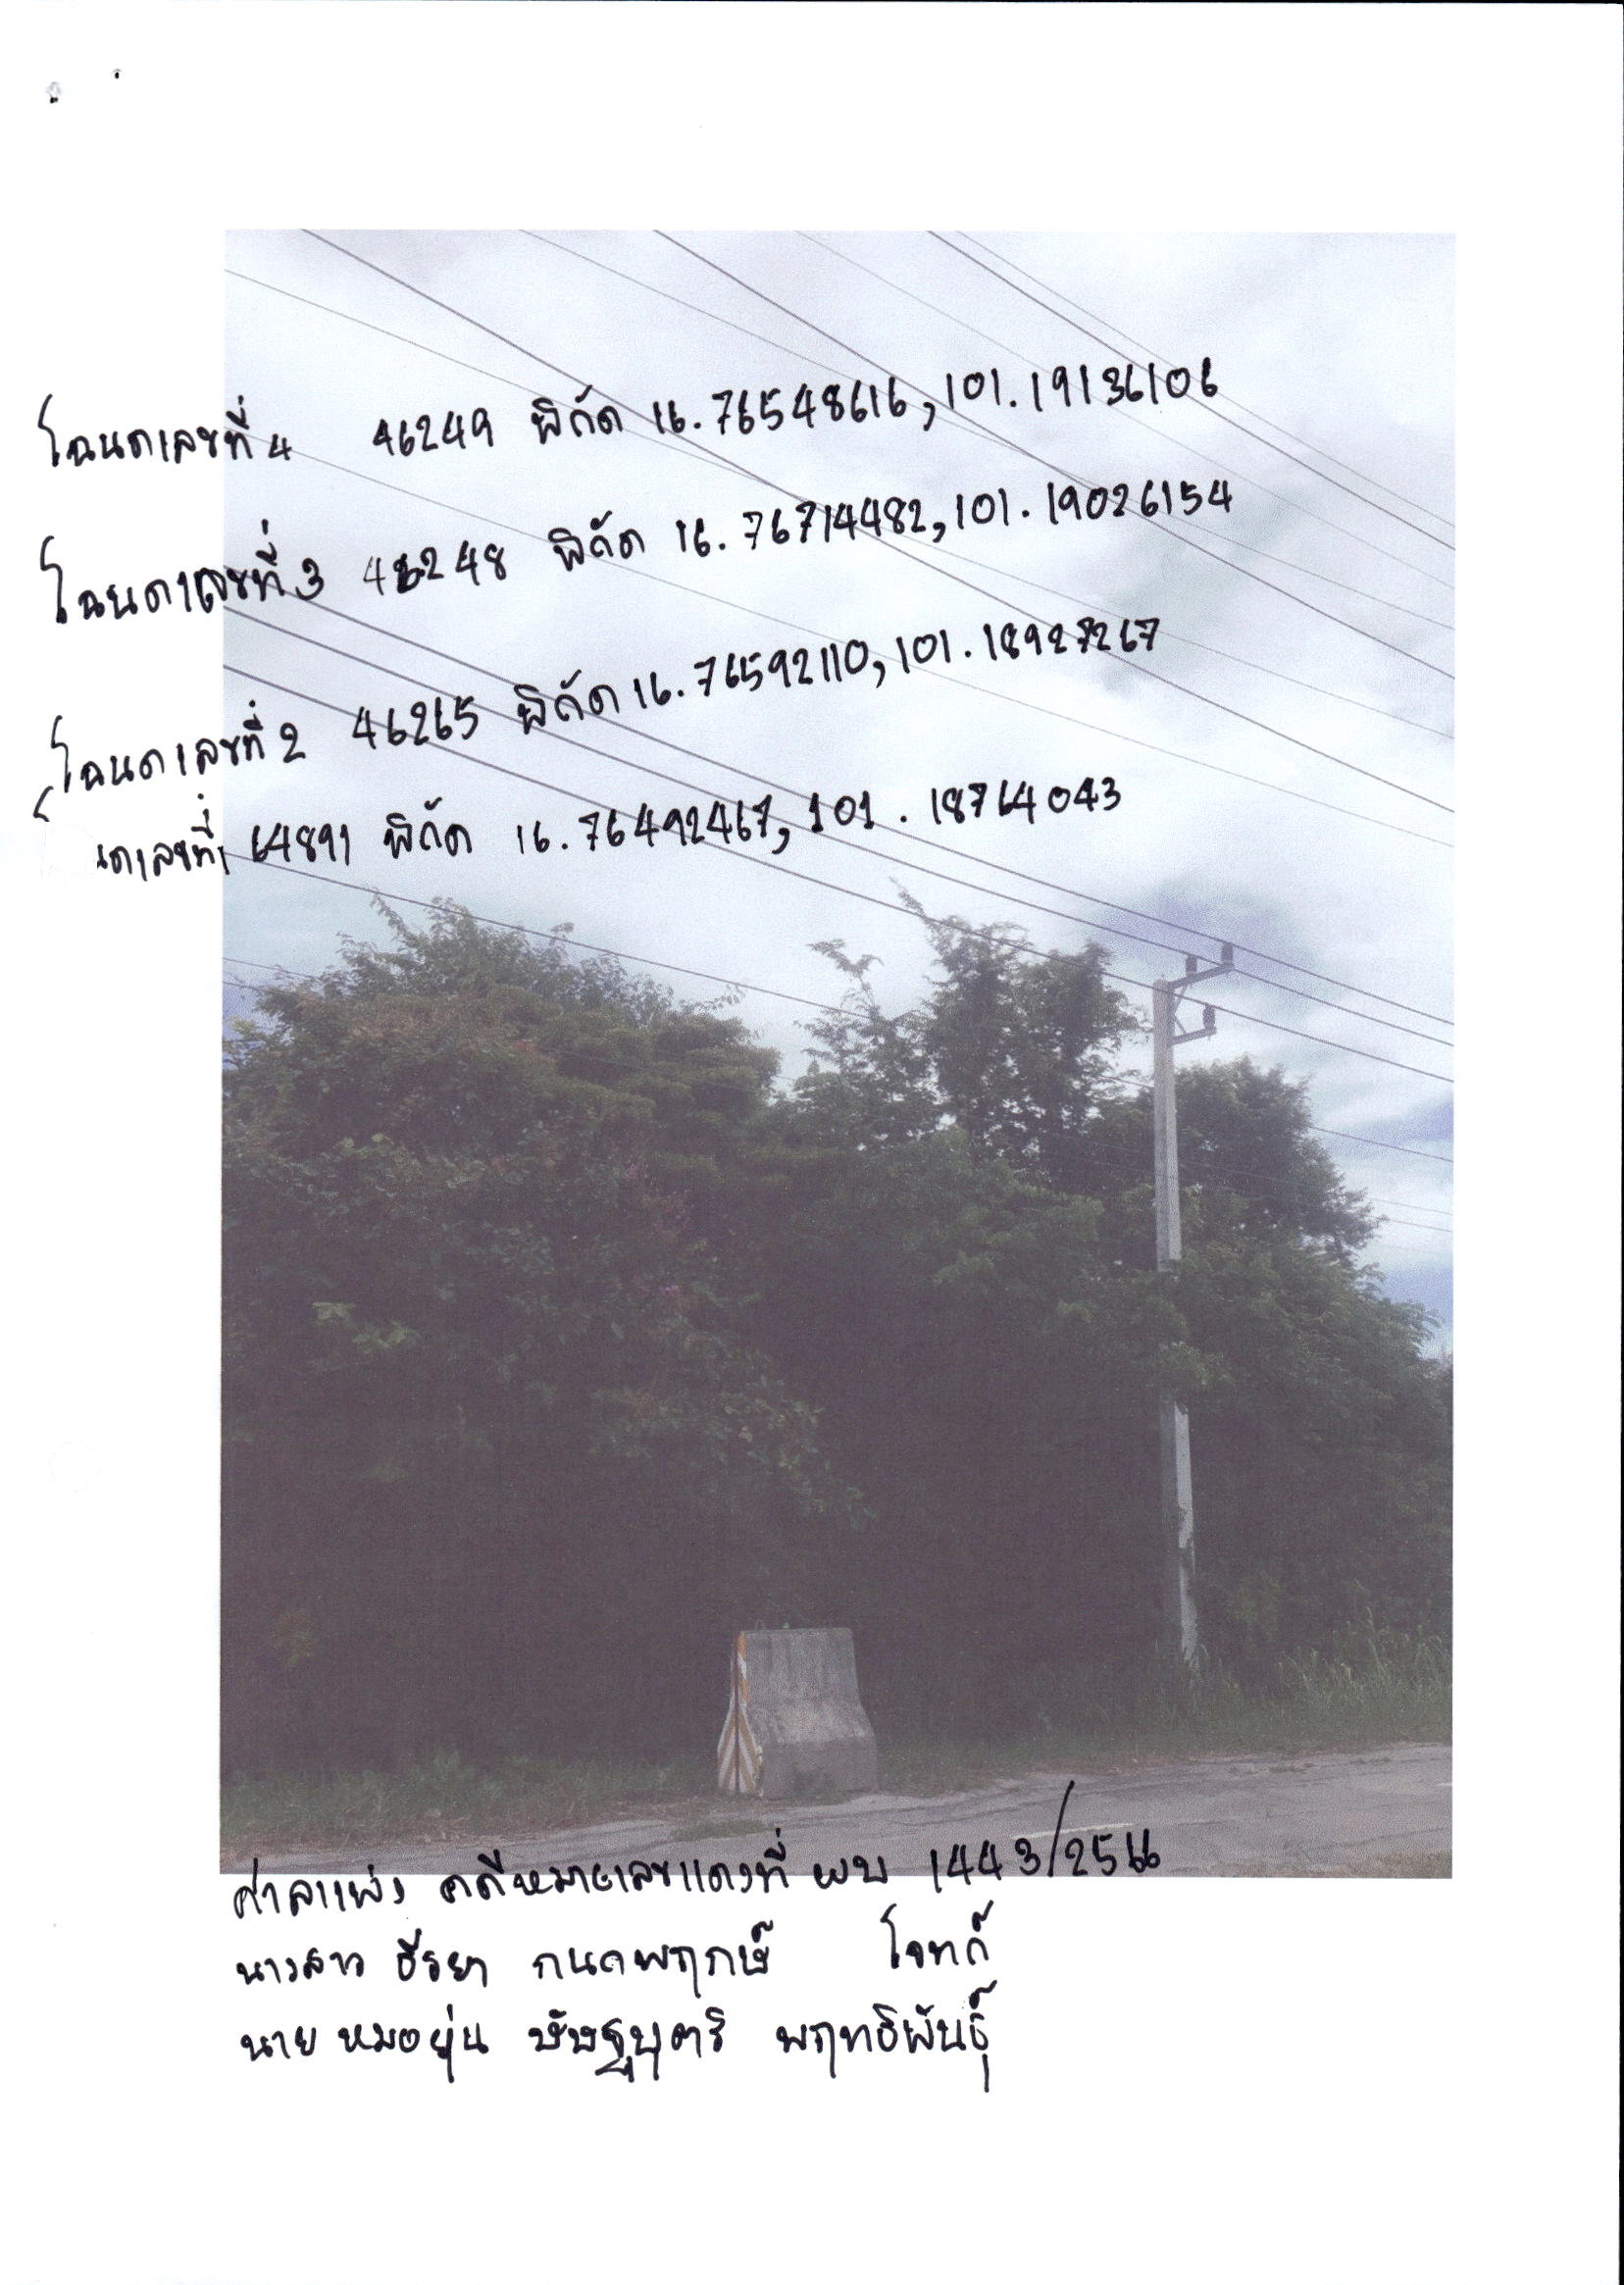 โฉนดเลขที่ 4 46249 พิกัด 16.76548616, 101.19136106
โฉนดเลขที่ 3 46248 พิกัด 16.76714482, 101.19026154
โฉนดเลขที่ 2 46265 พิกัด 16.76592110, 101.18927267
นดเลขที่ 1 64891 พิกัด 16.76492467, 101.18764043
ศาลแพ่ง คดีหมายเลขแดงที่ ผบ 1443/2566
นางสาว ธีรยา กนดพฤกษ์ โจทก์
นาย หมอยุ่น พฤทธิพันธุ์